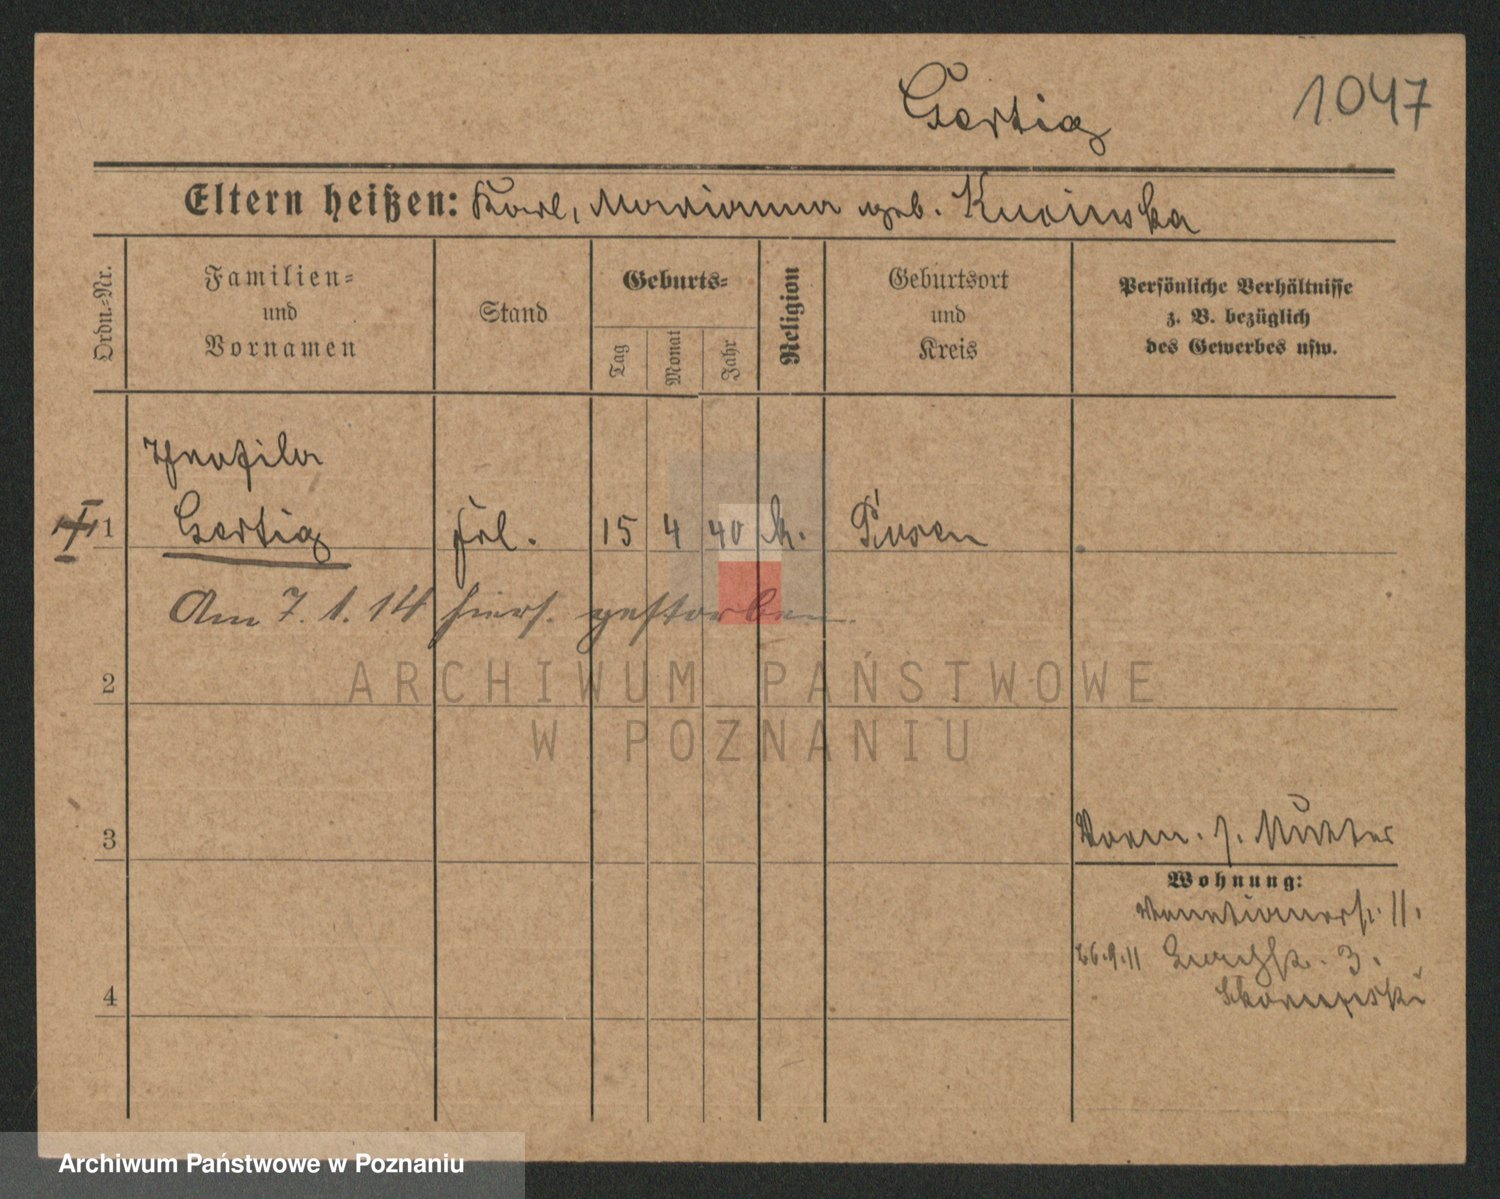 Gertig
1047
Eltern heißen: Karl, Marianna geb.
Ordn.-Nr.
Familien-
und
Vornamen
Stand
Geburts-
Tag
Monat
Jahr
Religion
Geburtsort
und
Kreis
Persönliche Verhältnisse
z. B. bezüglich
des Gewerbes usw.
1 Gertig Frl. 15 4 40 k. Posen
Am 7. 1. 14 hiers. gestorben.
ARCHIWUM PAŃSTWOWE
W POZNANIU
2
3
Wohnung:
11.
26.9.11 3.
4
Archiwum Państwowe w Poznaniu